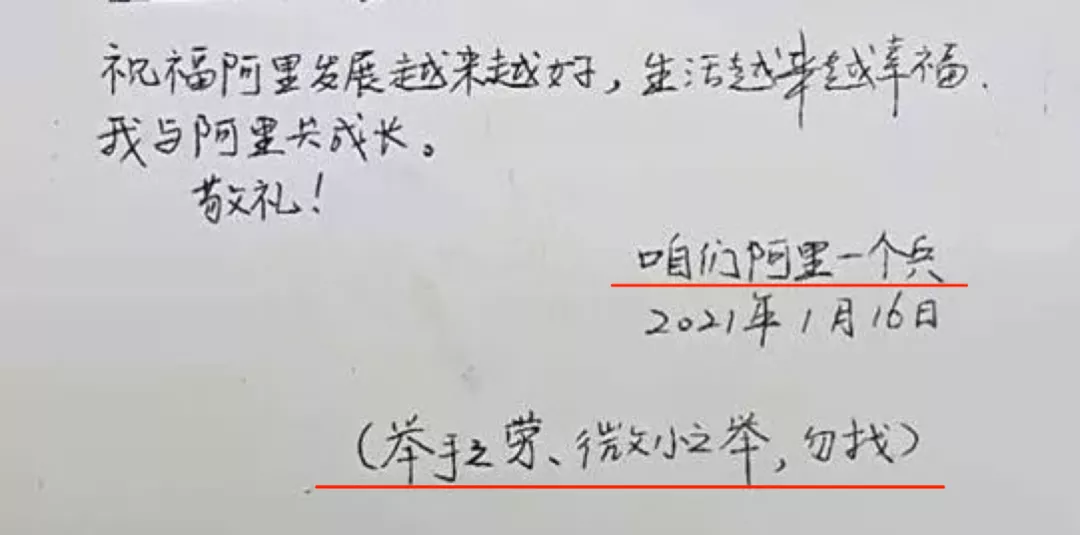 祝福阿里发展越来越好，生活越来越幸福.
我与阿里共成长。
敬礼！
咱们阿里一个兵
2021年1月16日
（举手之劳、微小之举，勿找）